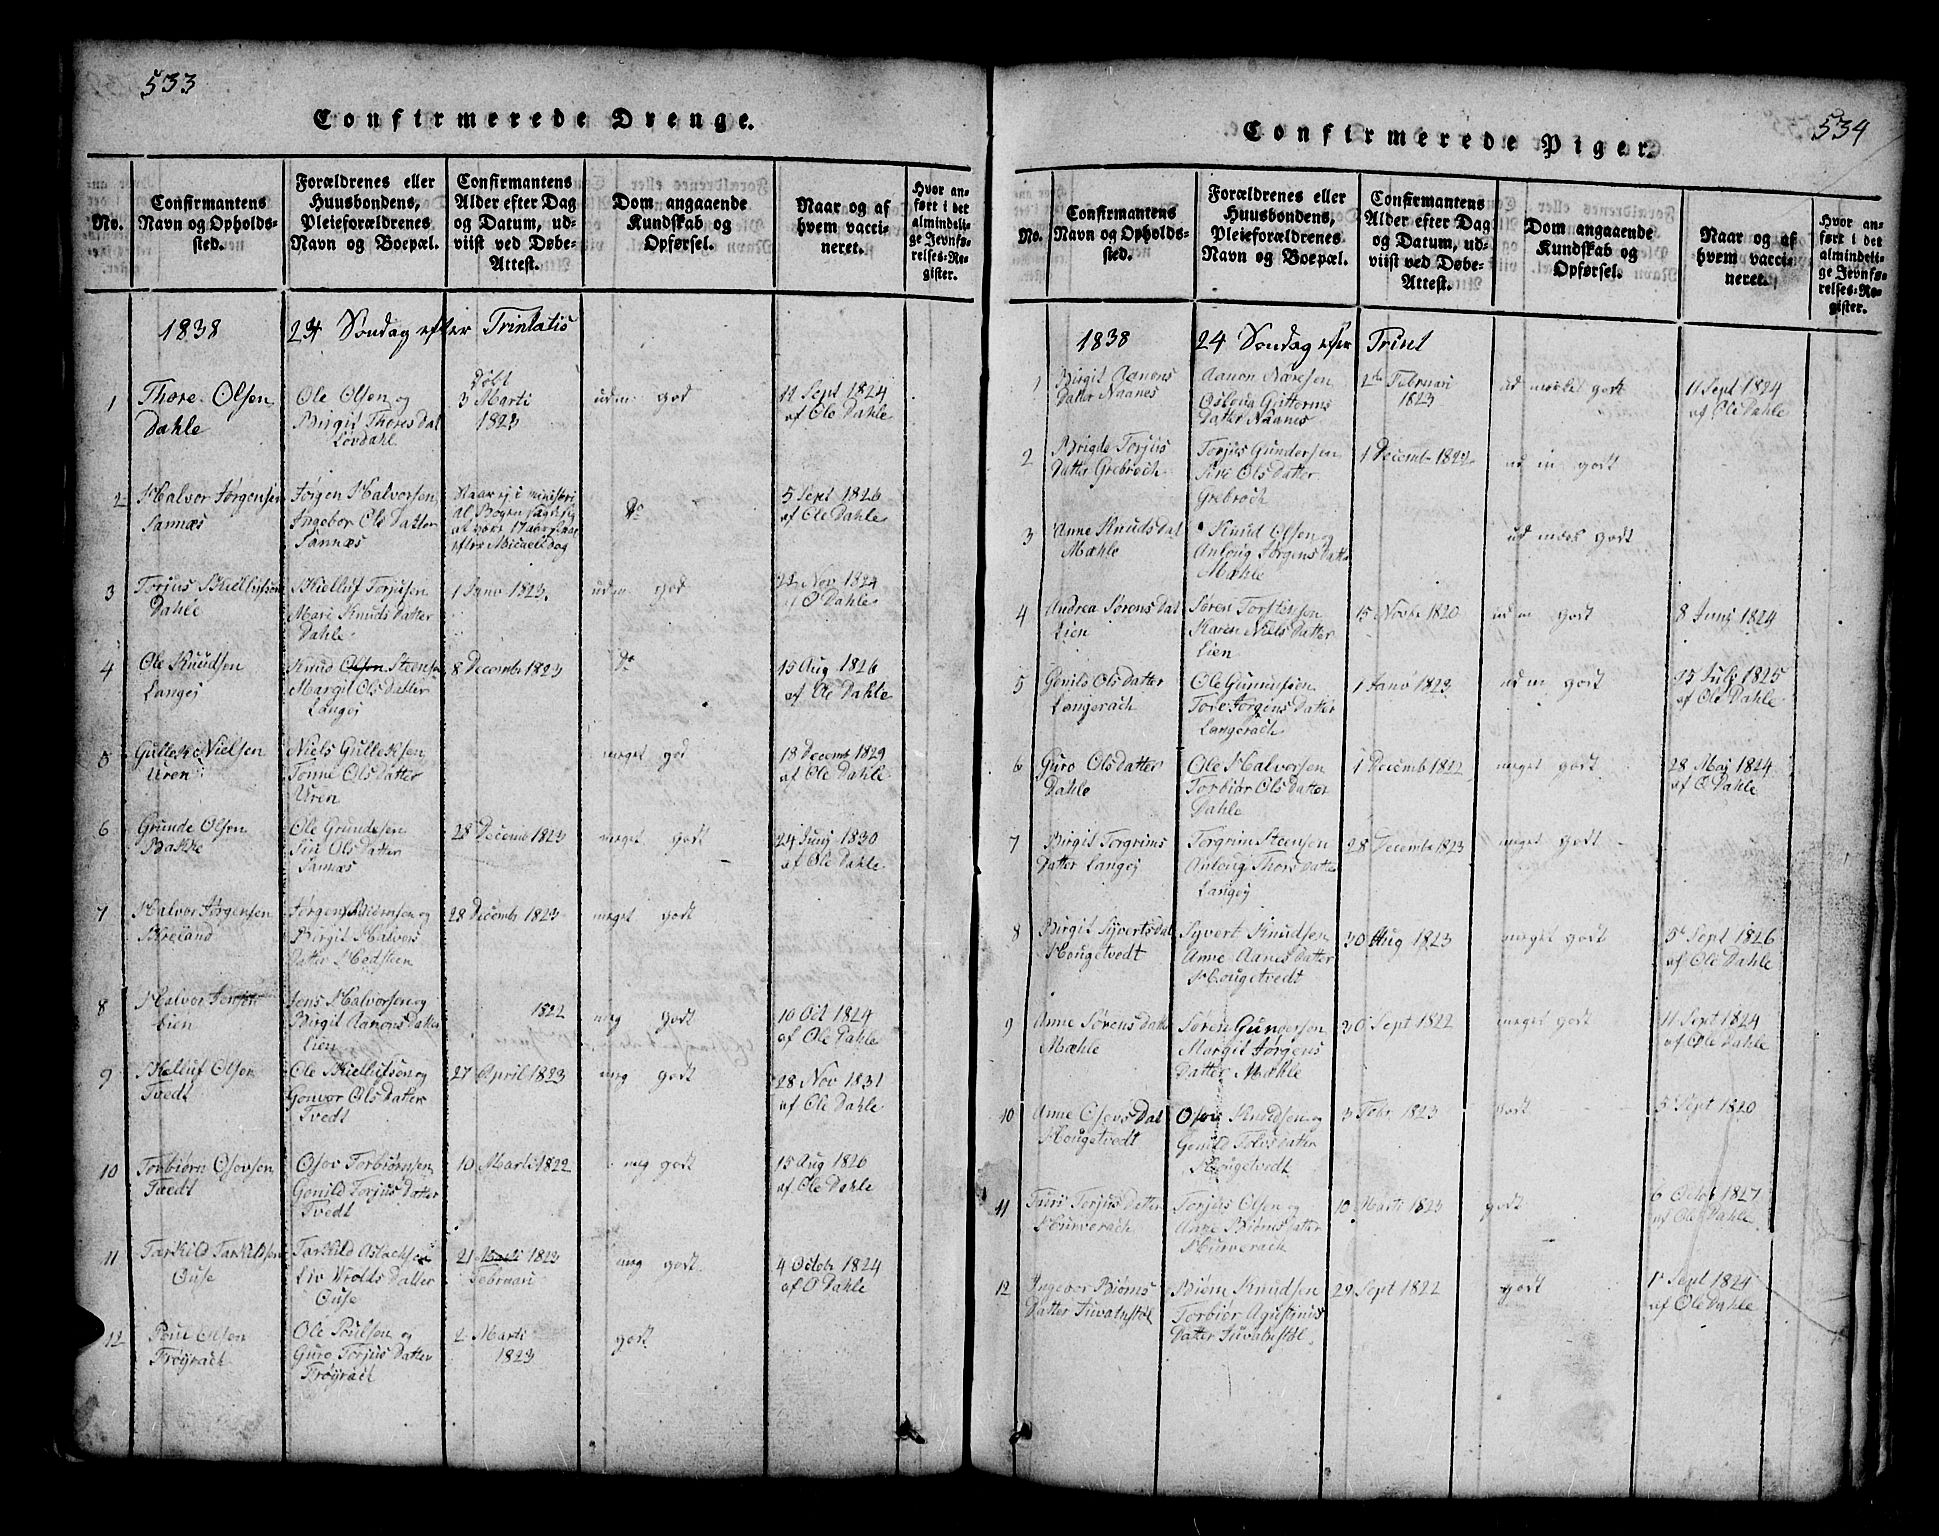 533
Confirmerede Drenge.
No.
Confirmantens
Navn og Opholds-
sted.
Forældrenes eller
Huusbondens,
Pleieforældrenes
Navn og Boepæl.
Confirmantens
Alder efter Dag
og Datum, ud-
viist ved Døbe-
Attest.
Dom angaaende
Kundskab og
Opførsel.
Naar og af
hvem vacci-
neret.
Hvor an-
ført i det
almindeli-
ge Jevnfø-
relses-Re-
gister.
1838 24 Søndag efter Trinitatis
1
Thore Olsen
Dahle
Ole Olsen og
Birgit Thores Dat
Løvdahl
Døbt
3 Marti
1823
udm god
11 Sept 1824
af Ole Dahle
2
Halvor Jørgensen
Sannæs
Jørgen Halvorsen
Ingebor Ole Datter
Sannæs
Staar ej i ministeri
al Bogen
at være 17 aar
efter Micaels dag
Do
5 Sept 1826
af Ole Dahle
3
Torjus Skiellufsen
Dahle
Skielluf Torjusen
Mari Knuds Datter
Dahle
1 Janv 1823
udm god
22 Nov 1824
af O Dahle
4
Ole Knudsen
Langej
Knud Olsen Steensen
Margit Ols Datter
Langej
8 Decemb 1823
Do
15 Aug 1826
af Ole Dahle
5
Gullek Nielsen
Uren
Niels Gulleksen
Tonne Ols Datter
Uren
meget god
18 Decemb 1829
af Ole Dahle
6
Grunde Olsen
Bakke
Ole Grundesen
Siri Ols Datter
Sannæs
28 Decemb 1823
meget godt
24 Junj 1830
af Ole Dahle
7
Halvor Jørgensen
Skreland
Jørgen Biørnsen og
Birgit Halvors
Datter Hodsteen
28 Decemb 1823
meget godt
8
Halvor Jensen
Lien
Jens Halvorsen og
Birgit Aanons Datter
Lien
1822
meg godt
10 Oct 1824
af Ole Dahle
9
Skelluf Olsen
Tvedt
Ole Skiellufsen og
Gonvor Ols Datter
Tvedt
27 April 1823
meg godt
28 Nov 1831
af Ole Dahle
10
Torbiørn Osovsen
Tvedt
Osov Torbiørnsen
Gonild Torjus Datter
Tvedt
10 Marti 1822
meg godt
15 Aug 1826
af Ole Dahle
11
Tarkild Tarkildsen
Ouse
Tarkild Aslachsen
Liv Wrolds Datter
Ouse
21 Marti 1823
Februari
meg godt
4 Octob 1824
af O Dahle
12
Poul Olsen
Frøyrach
Ole Poulsen og
Guro Torjus Datter
Frøyrach
2 Marti
1823
godt
534
Confirmerede Piger.
No.
Confirmantens
Navn og Opholds-
sted.
Forældrenes eller
Huusbondens,
Pleieforældrenes
Navn og Boepæl.
Confirmantens
Alder efter Dag
og Datum, ud-
viist ved Døbe-
Attest.
Dom angaaende
Kundskab og
Opførsel.
Naar og af
hvem vacci-
neret.
Hvor an-
ført i det
almindeli-
ge Jevnfø-
relses-Re-
gister.
1838 24 Søndag efter Trinit
1
Birgit Aanons
Datter Naanes
Aanon Næresen
Osloua Guttorms
Datter Naanes
2de Februari
1823
ud mærket godt
11 Sept 1824
af Ole Dahle
2
Brigde Torjus
Datter Grebroch
Torjus Gundersen
Siri Ols Datter
Grebroch
1 Decemb 1822
ud m godt
3
Anne Knuds Dat
Mæhle
Knud Olsen og
Anloug Jørgens Datter
Mæhle
ud mær godt
4
Andrea Sørens Dat
Lien
Søren Torstensen
Karen Niels Datter
Lien
15 Novbr 1820
ud m godt
8 Junj 1824
5
Gonild Ols Datter
Langerach
Ole Gunnufsen
Tore Jørgens Datter
Langerach
1 Janv 1823
ud m godt
15 July 1825
af Ole Dahle
6
Guro Ols Datter
Dahle
Ole Halvorsen
Torbiør Ols Datter
Dahle
1 Decemb 1822
meget godt
28 Maj 1824
af O Dahle
7
Birgit Torgrims
Datter Langej
Torgrim Steensen
Anloug Thors Datter
Langej
28 Decemb 1823
meget godt
8
Birgit Syverts Dat
Hougetvedt
Syvert Knudsen
Anne Aanes Datter
Hougetvedt
30 Aug 1823
meget godt
5 Sept 1826
af Ole Dahle
9
Anne Sørens Datter
Mæhle
Søren Gundersen
Margit Jørgens
Datter Mæhle
30 Sept 1822
meget godt
11 Sept 1824
af Ole Dahle
10
Anne Osovs Dat
Hougetvedt
Osov Knudsen og
Gonild Tolvs Datter
Hougetvedt
3 Febr 1823
godt
5 Sept 1820
11
Turi Torjus Datter
Hurverach
Torjus Olsen
Anne Biørns Datter
Hurverach
10 Marti 1823
godt
6 Octob 1827
af Ole Dahle
12
Ingebor Biørns
Datter Juvatnstøl
Biørn Knudsen
Torbiør Agustinus
Datter Juvatnstøl
29 Sept 1822
godt
1 Sept 1824
af Ole Dahle